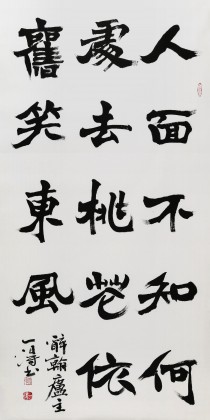 人面不知何
處去桃花依
舊笑東風
醉翰廬主